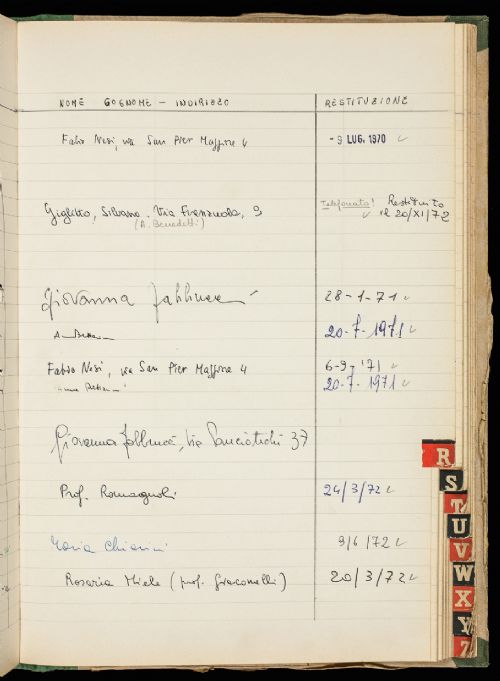 NOME COGNOME - INDIRIZZO RESTITUZIONE
Fabio Nesi, via San Pier Maggiore 4 - 9 LUG. 1970
Giglietto, Silvano. Via Firenzuola, 9 Telefonato! Restituito
(A. Benedetti) il 20/XI/72
Giovanna Fabbrucci 28-1-71
20-7-1971
Fabio Nesi, via San Pier Maggiore 4 6-9-'71
20-7-1971
Giovanna Fabbrucci, via 37
Prof. Romagnoli 24/3/72
Maria Chiarini 9/6/72
Rosaria Miele (prof. Giacomelli) 20/3/72
R
S
T
U
V
W
X
Y
Z